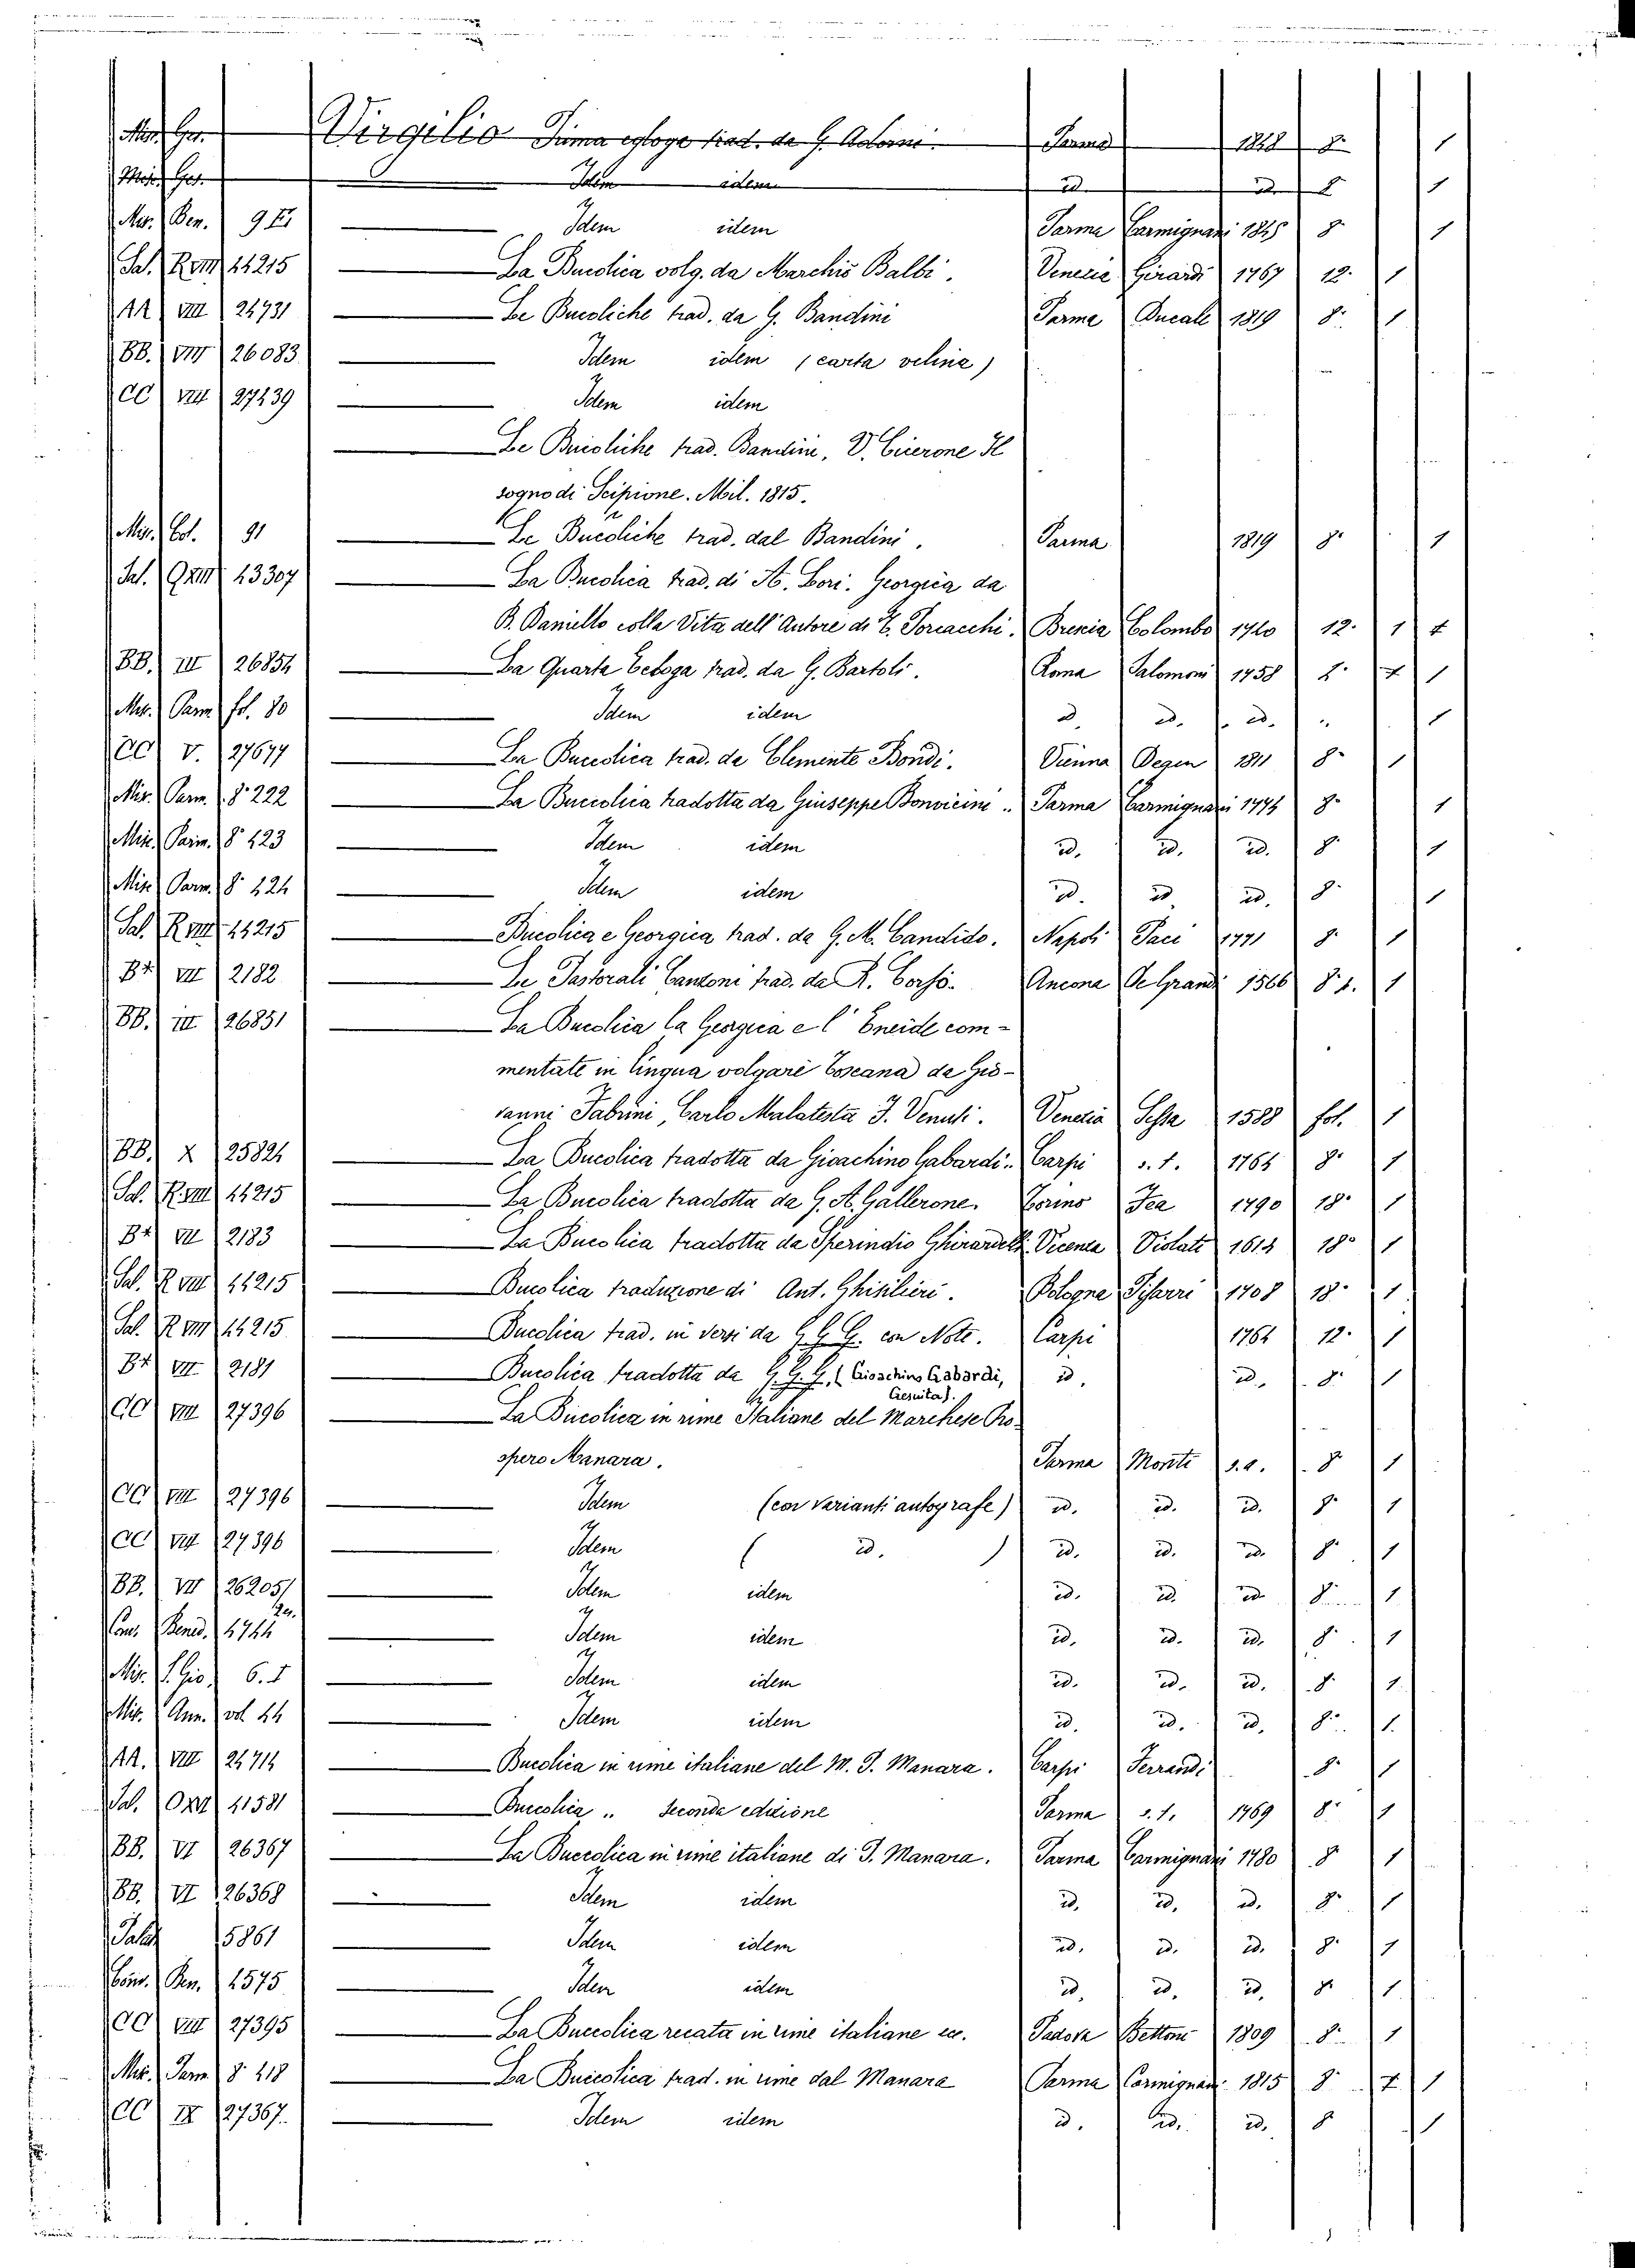 Mis. Ger. Virgilio Prima egloga trad. da G. Adorni. Parma 1828 8° 1
Misc. Ger. Idem idem id. id. 8 1
Mis. Ben. 9 Idem idem Parma Carmignani 1845 8° 1
Sal. R 14215 La Bucolica volg. da Marchiò Balbi. Venezia Girardi 1767 12° 1
AA VIII 24731 Le Bucoliche trad. da G. Bandini Parma Ducale 1819 8° 1
BB. VII 26083 Idem idem (carta velina)
CC VIII 27239 Idem idem
Le Bucoliche trad. Bandini, V. Cicerone Il
sogno di Scipione. Mil. 1815.
Mis. Col. 91 Le Bucoliche trad. dal Bandini. Parma 1819 8° 1
Sal. 13307 La Bucolica trad. di A. Lori. Georgica da
B. Daniello colla Vita dell'Autore di T. Porcacchi. Brescia Colombo 1720 12° 1
BB. III 26854 La Quarta Egloga trad. da G. Bartoli. Roma Salomoni 1758 1
Mis. Parm fol. 80 Idem idem id. id. id. 1
CC V. 27677 La Buccolica trad. da Clemente Bondi. Vienna Degen 1811 8° 1
Mis. Parm. 8° 222 La Buccolica tradotta da Giuseppe Bonvicini Parma Carmignani 1774 8° 1
Mis. Parm. 8° 223 Idem idem id. id. id. 8° 1
Mis. Parm. 8° 224 Idem idem id. id. id. 8° 1
Sal. R 14215 Bucolica e Georgica trad. da G. M. Candido. Napoli Paci 1771 8° 1
B* VII 2182 Le Pastorali Canzoni trad. da R. Corso. Ancona De Grandi 1566 8° 1
BB. III 26851 La Bucolica la Georgica e l'Eneide com-
mentate in lingua volgare Toscana da Gio-
vanni Fabrini, Carlo Malatesta F. Venuti. Venezia Sessa 1588 fol. 1
BB. X 25824 La Bucolica tradotta da Gioachino Gabardi. Carpi s.t. 1764 8° 1
Sal. R. VIII 14215 La Bucolica tradotta da G. A. Gallerone. Torino Fea 1790 18° 1
B* VII 2183 La Bucolica tradotta da Sperindio Ghirardelli Vicenza Violati 1614 18° 1
Sal. R. VIII 14215 Bucolica traduzione di Ant. Ghisilieri. Bologna Pisarri 1708 18° 1
Sal. R VIII 14215 Bucolica trad. in versi da G. G. G. con Note. Carpi 1764 12° 1
B* VII. 2181 Bucolica tradotta da G. G. G. (Gioachino Gabardi, id. id. 8° 1
Gesuita).
CC VIII 27396 La Bucolica in rime Italiane del Marchese Pro-
spero Manara. Parma Monti s.a. 8° 1
CC VIII 27396 Idem (con Varianti autografe) id. id. id. 8° 1
CC VIII 27396 Idem ( id. ) id. id. id. 8° 1
BB. VII 26205 Idem idem id. id. id. 8° 1
Cons. Bened. 4744 Idem idem id. id. id. 8° 1
Mis. S. Gio. 6. Idem idem id. id. id. 8° 1
Mis. Ann. vol 44 Idem idem id. id. id. 8° 1.
AA. VIII 24714 Bucolica in rime italiane del M. P. Manara. Carpi Ferrandi 8° 1
Sal. O 11581 Buccolica .. Seconda edizione Parma s.t. 1769 8° 1
BB. VI 26367 La Buccolica in rime italiane di P. Manara. Parma Carmignani 1780 8° 1
BB. VI 26368 Idem idem id. id. id. 8° 1
Palat 15861 Idem idem id. id. id. 8° 1
Cons. Ben. 1575 Idem idem id. id. id. 8° 1
CC VIII 27395 La Buccolica recata in rime italiane ec. Padova Bettoni 1809 8° 1
Mis. Parm. 8° 218 La Buccolica trad. in rime dal Manara Parma Carmignani 1815 8° 1
CC IX 27367. Idem idem id. id. id. 8 1